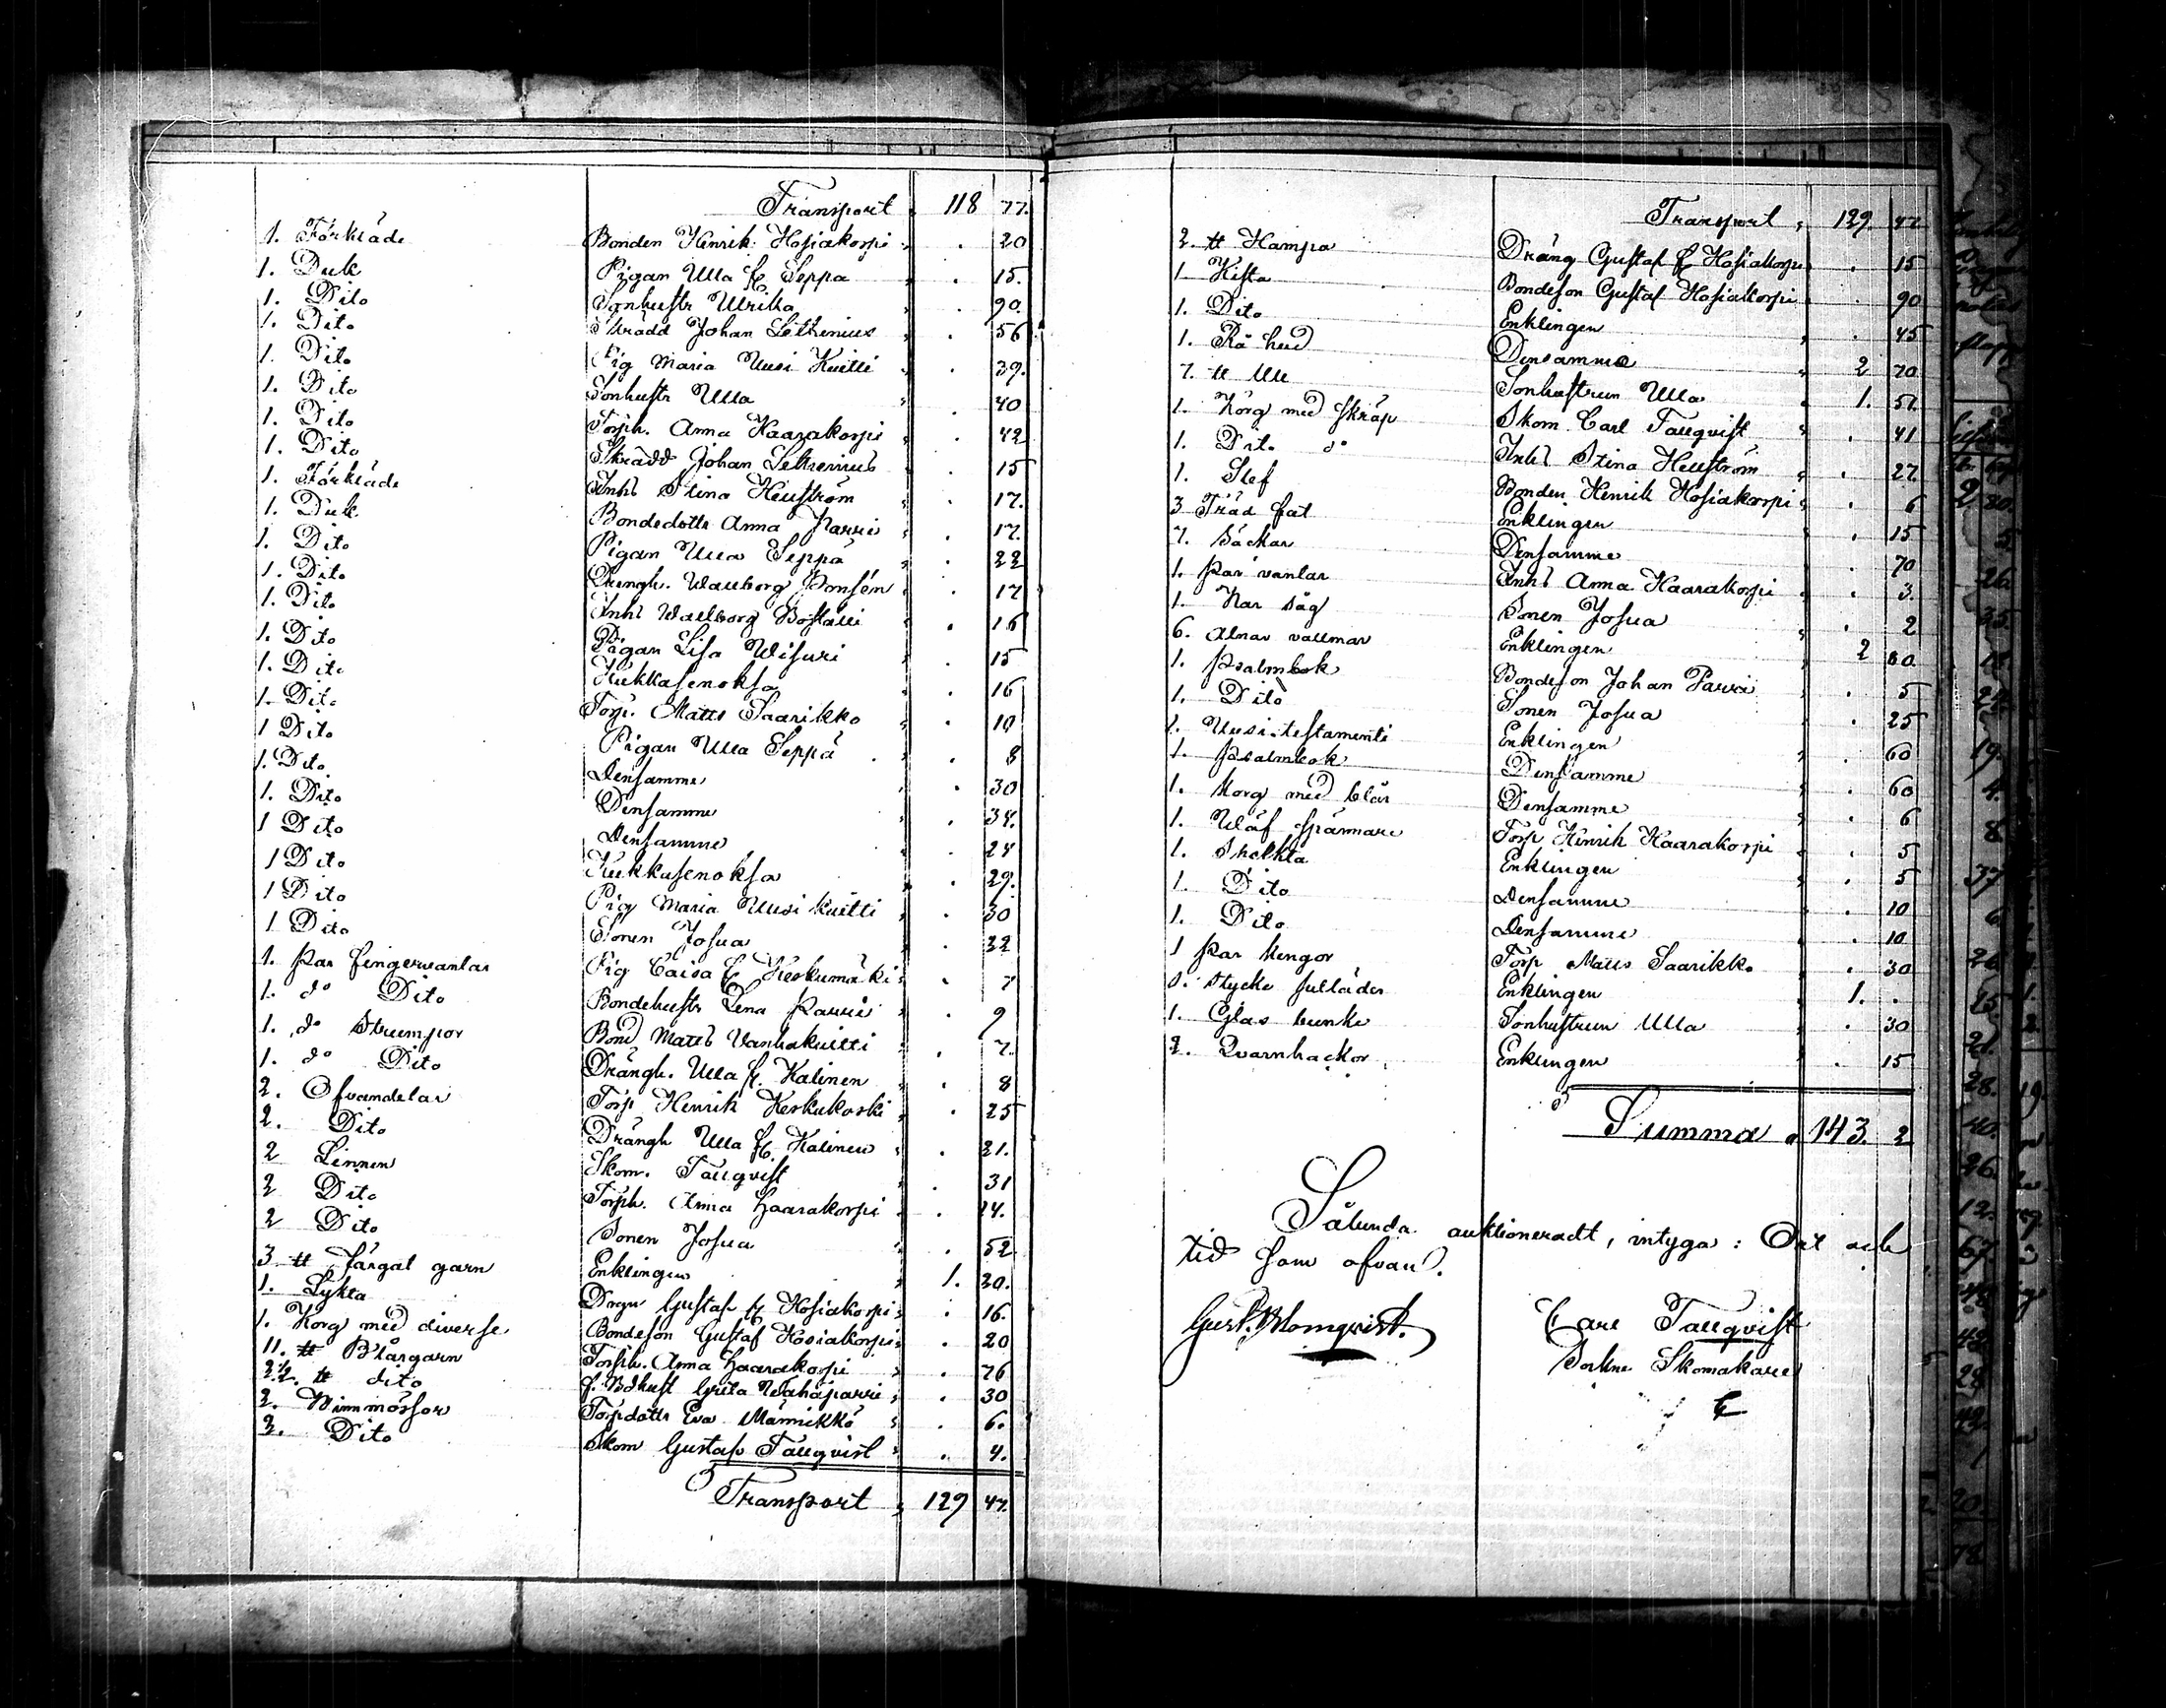 Transport 118 77.
1. Förkläde Bonden Henrik Hosiakorpi . 20
1. Duk Pigan Ulla fr Seppä . 15.
1. Dito Sonhustr Ulrika . 90.
1. Dito Skrädd Johan Lethenius . 56
1. Dito Pig Maria Uusi Kuitti . 39.
1. Dito Sonhustr Ulla . 40
1. Dito Torph. Anna Haarakorpi . 42
1. Dito Skrädd Johan Lethenius . 15
1. Förkläde Inhs Stina Hellström . 17.
1. Duk Bondedottr Anna Parri . 17.
1. Dito Pigan Ulla Seppä . 22
1. Dito Drängh. Wallborg Jonsén . 17
1. Dito Inhs Wallborg Böstalli . 16
1. Dito Pigan Lisa Wisuri . 15
1. Dito Kukkasenoksa . 16
1. Dito Torp. Matts Saarikko . 10
1 Dito Pigan Ulla Seppä . 8
1. Dito Densamme . 30
1. Dito Densamme . 34.
1 Dito Densamme . 24
1 Dito Kukkasenoksa . 29.
1 Dito Pig Maria Uusi Kuitti . 30
1 Dito Sonen Josua . 32
1. Par fingervantar Pig Caisa fr Keskumäki . 7
1. do Dito Bondehustr Lena Parri . 9
1. do Strumpor Bond Matts Vanhakuitti . 7.
1. do Dito Drängh. Ulla fr. Kalinen . 8
2. Ofvandelar Torp Henrik Keskukoski . 25
2. Dito Drängh Ulla fr. Kalinen . 21.
2 Linnen Skom. Tallqvist . 31
2 Dito Torph. Anna Haarakorpi . 14.
2 Dito Sonen Josua . 52
3 tt Färgat garn Enklingen 1. 30.
1. Lykta Drgn Gustaf fr Hosiakorpi . 16.
1. Korg med diverse Bondeson Gustaf Hosiakorpi . 20
11. tt Blårgarn Torph. Anna Haarakorpi . 76
2½. tt dito f. Bdhust Greta Wähäparri . 30
2. Mössor Torpdottr Eva Männikkö . 6.
3. Dito Skom Gustaf Tallqvist . 4.
Transport 129 47.
Transport 129. 47
2. tt Hampa Dräng Gustaf fr Hosiakorpi . 15
1 Kista Bondeson Gustaf Hosiakorpi . 90
1. Dito Enklingen . 45
1. Rå hud Densamme 2 70
7. tt Ull Sonhustrun Ulla 1. 51
1. Korg med skräp Skom. Carl Tallqvist . 41
1. Dito do Inhs Stina Hellström . 27
1. Slef Bonden Henrik Hosiakorpi . 6
3 Träd fat Enklingen . 15
7. Säckar Densamme . 70
1. Par vantar Inhs Anna Haarakorpi . 3.
1. Kar såg Sonen Josua . 2
6. Alnar vallmar Enklingen 2 60
1. Psalmbok Bondeson Johan Parri . 5
1. Dito Sonen Josua . 25
1. Uusi testamenti Enklingen . 60
1. Psalmbok Densamme . 60
1. Korg med blår Densamme . 6
1. Wäf spännare Torp Henrik Haarakorpi . 5
1. Skalkta Enklingen . 5
1. Dito Densamme . 10
1. Dito Densamme . 10
1 Par kengor Torp Matts Saarikko . 30
stycke sulläder Enklingen 1. .
1. Glas bunke Sonhustrun Ulla . 30
2. Qvarnhackor Enklingen . 15
Summa 143. 2
Sålunda auktioneradt, intyga: Ort och
tid som ofvan.
Gust. Blomqvist. Carl Tallqvist
Sockne Skomakare